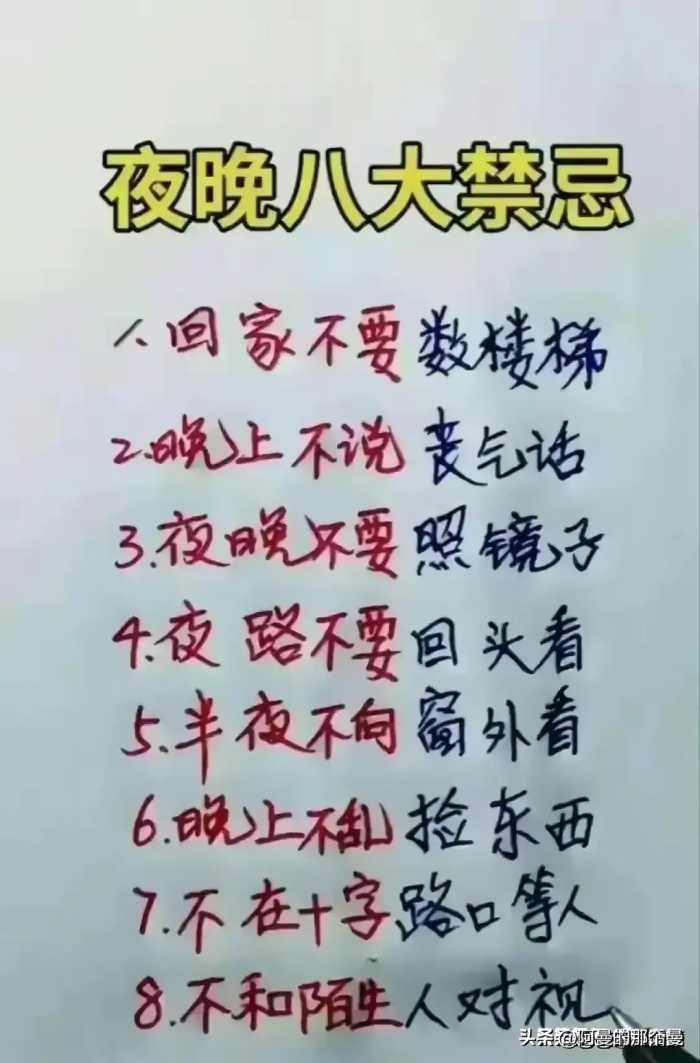 夜晚八大禁忌
1.回家不要数楼梯
2.晚上不说丧气话
3.夜晚不要照镜子
4.夜路不要回头看
5.半夜不向窗外看
6.晚上不乱捡东西
7.不在十字路口等人
8.不和陌生人对视
头条@阿曼的那个曼